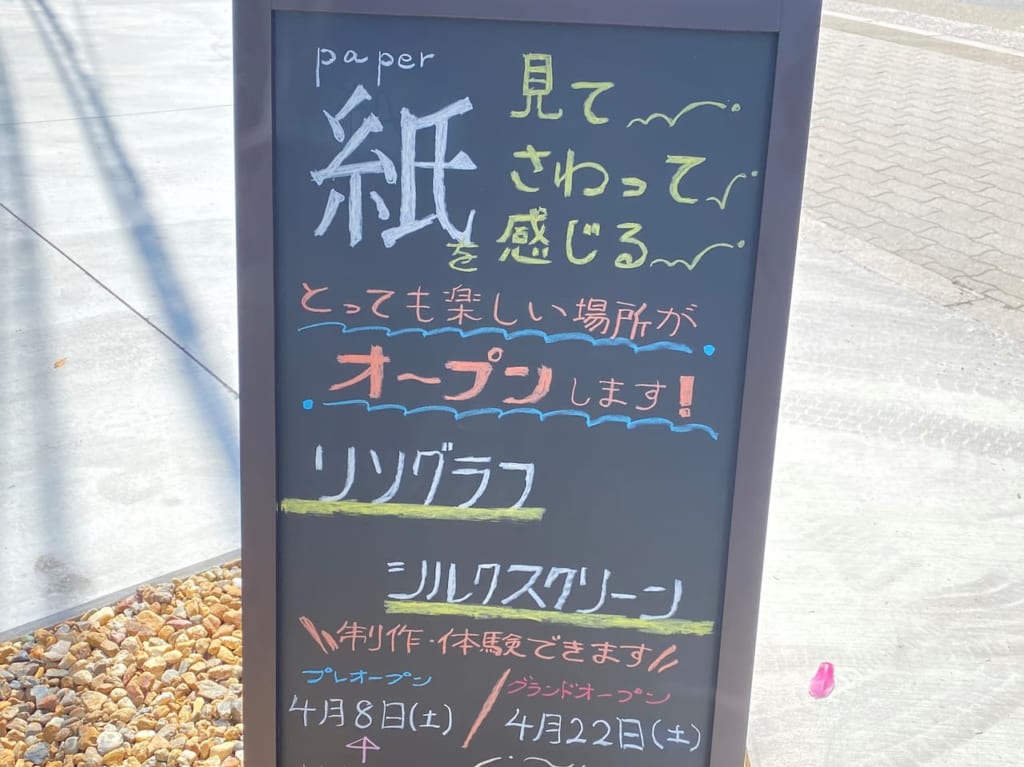 paper
紙を
見て
さわって
感じる
とっても楽しい場所が
オープンします!
リソグラフ
シルクスクリーン
\\制作・体験できます//
プレオープン
4月8日(土)
/
グランドオープン
4月22日(土)